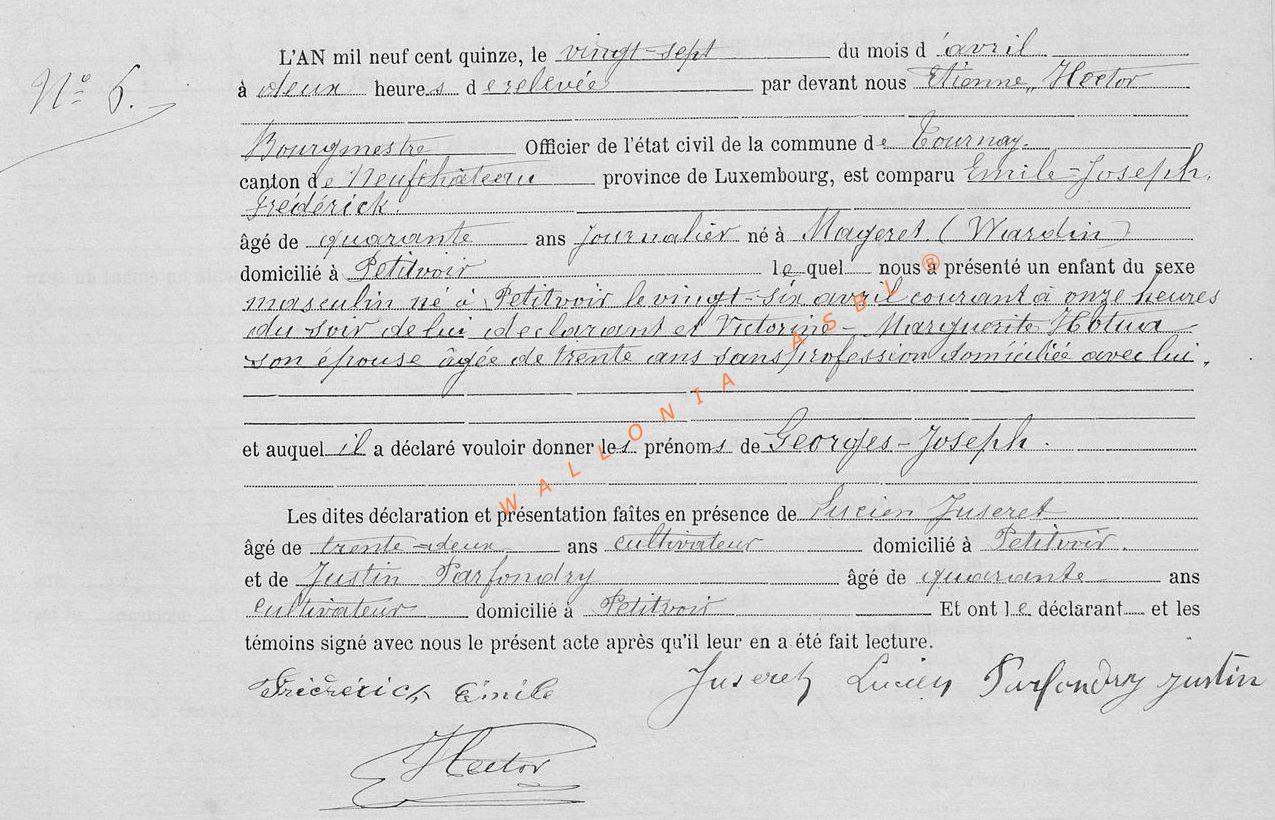 L'AN mil neuf cent quinze, le vingt-sept du mois d'avril
N° 6.
à deux heures de relevée par devant nous Etienne, Hector
Bourgmestre Officier de l'état civil de la commune de Tournay.
canton de Neufchâteau province de Luxembourg, est comparu Emile-Joseph.
Frédérick.
âgé de quarante ans Journalier né à Mageret (Wardin)
domicilié à Petitvoir lequel nous a présenté un enfant du sexe
masculin né à Petitvoir le vingt-six avril courant à onze heures
du soir de lui déclarant et Victorine-Marguerite Hotua
son épouse âgée de trente ans sans profession domiciliée avec lui.
et auquel il a déclaré vouloir donner les prénoms de Georges-Joseph.
Les dites déclaration et présentation faîtes en présence de Lucien Juseret
âgé de trente-deux ans cultivateur domicilié à Petitvoir.
et de Justin Parfondry âgé de quarante ans
cultivateur domicilié à Petitvoir Et ont le déclarant et les
témoins signé avec nous le présent acte après qu'il leur en a été fait lecture.
Frédérick Emile Juseret Lucien Parfondry Justin
Hector
WALLONIA ASBL ®